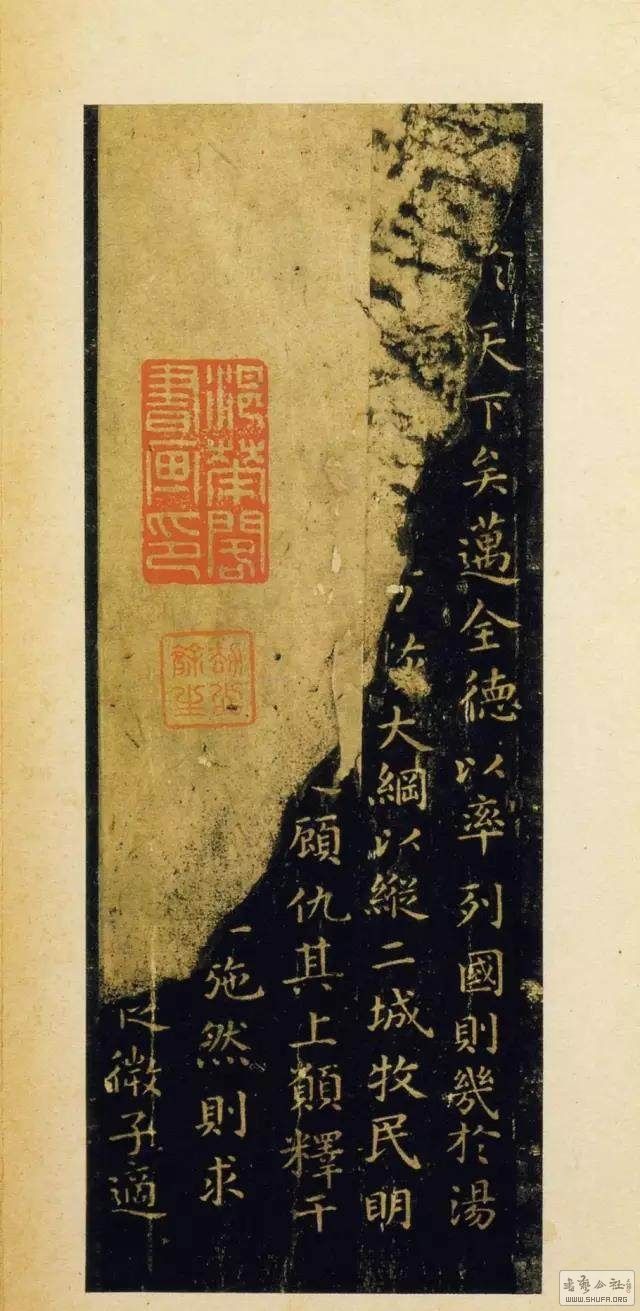 天下矣邁全德以率列國則幾於湯
大綱以縱二城牧民明
顧仇其上願釋干
施然則求
微子適
閣書畫印
書藝公社
WWW.SHUFA.ORG